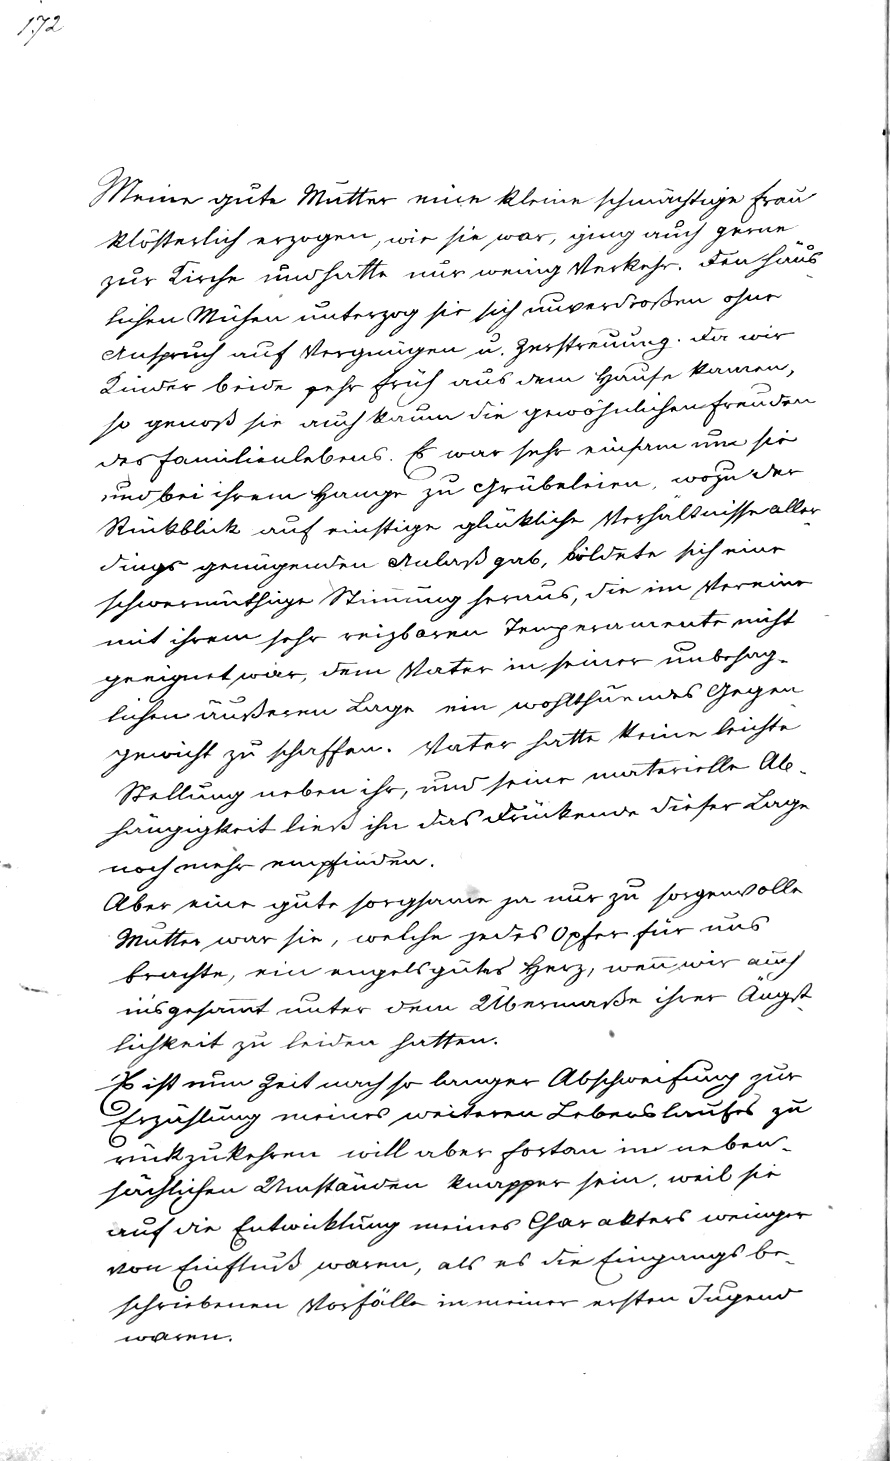 172
Meine gute Mutter eine kleine schmächtige Frau
klösterlich erzogen, wie sie war, ging auch gerne
zur Kirche und hatte nur wenig Verkehr. Den häus
lichen Mühen unterzog sie sich unverdroßen ohne
Anspruch auf Vergnügen u. Zerstreuung. Da wir
Kinder beide sehr früh aus dem Hause kamen,
so genoß sie auch kaum die gewöhnlichen Freuden
des Familienlebens. Es war sehr einsam um sie
und bei ihrem Hange zu Grübeleien, wozu der
Rückblick auf einstige glükliche Verhältnisse aller-
dings genügenden Anlaß gab, bildete sich eine
schwermüthige Stim̄ung heraus, die im Vereine
mit ihrem sehr reizbaren Temperamente nicht
geeignet war, dem Vater in seiner unbehag-
lichen äußeren Lage ein wohlthuendes Gegen
gewicht zu schaffen. Vater hatte keine leichte
Stellung neben ihr, und seine materielle Ab-
hängigkeit ließ ihn das Drückende dieser Lage
noch mehr empfinden.
Aber eine gute sorgsame ja nur zu sorgenvolle
Mutter war sie, welche jedes Opfer für uns
brachte, ein engelsgutes Herz, wen̄ wir auch
insgesam̄t unter dem Übermaße ihrer Ängst-
lichkeit zu leiden hatten.
Es ist nun Zeit nach so langer Abschweifung zur
Erzählung meines weiteren Lebenslaufes zu
rückzukehren will aber fortan in neben-
sächlichen Umständen knapper sein, weil sie
auf die Entwicklung meines Charakters weniger
von Einfluß waren, als es die Eingangs be-
schriebenen Vorfälle in meiner ersten Jugend
waren.